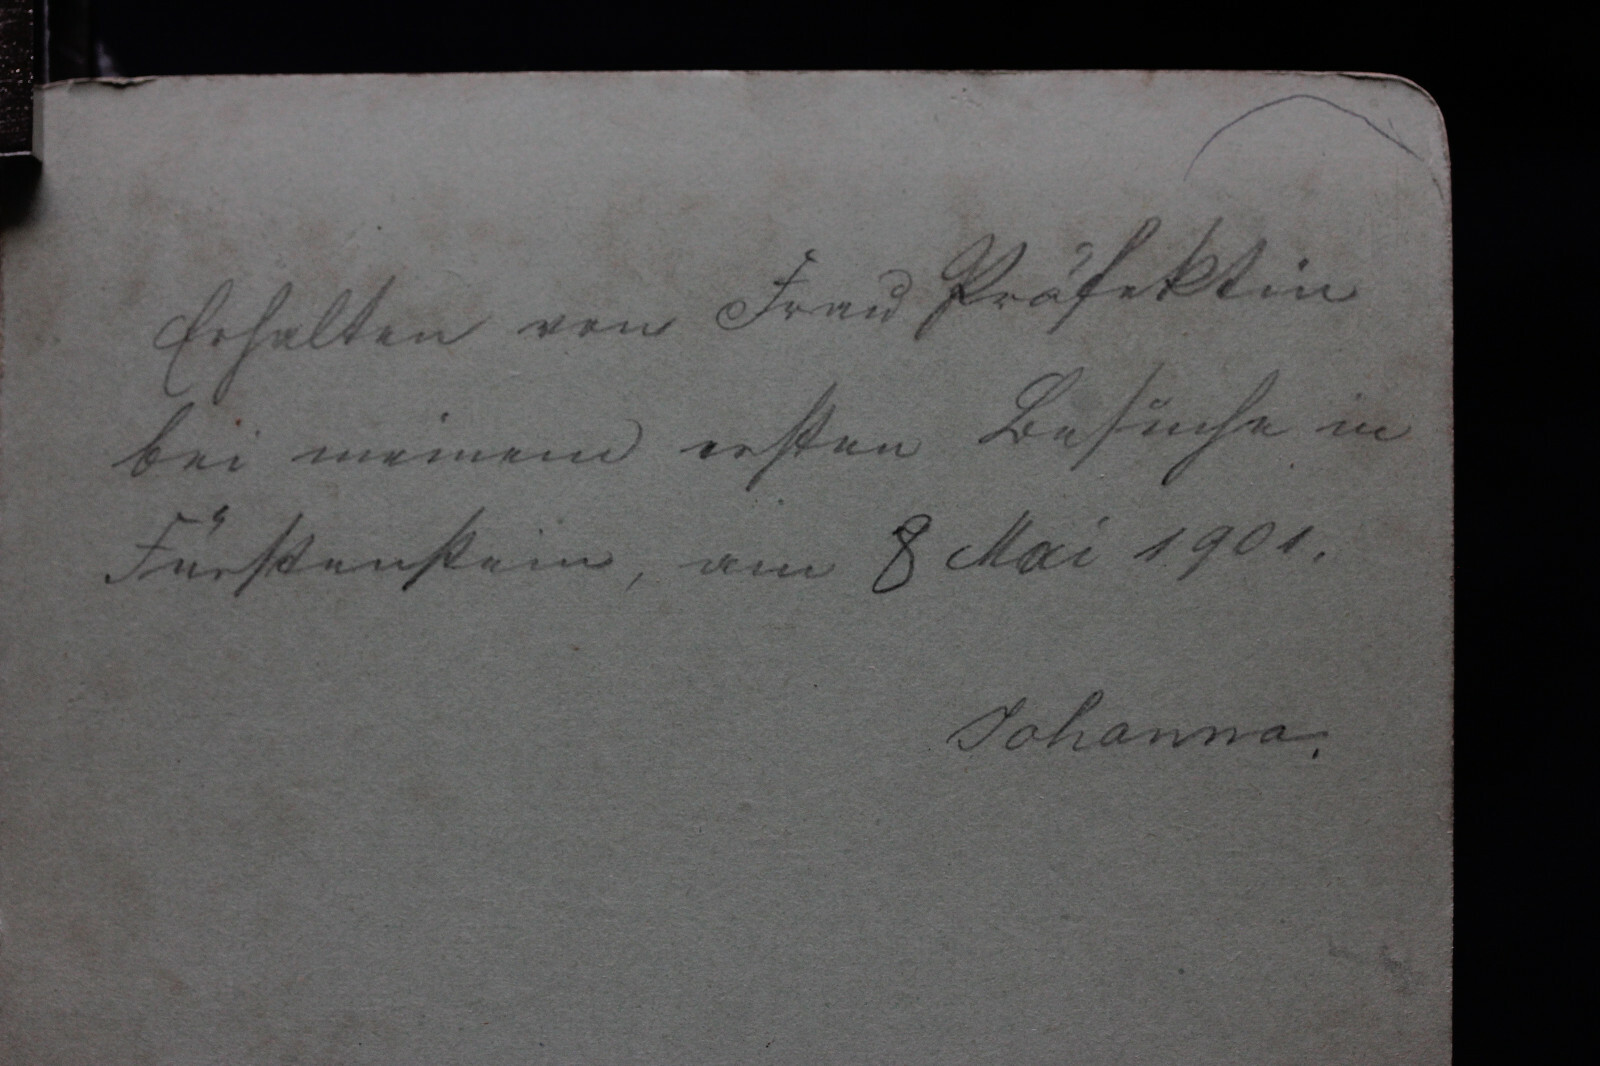 Erhalten von Frau Präfektin
bei meinem ersten Besuche in
Fürstenstein, am 8 Mai 1901.
Johanna.